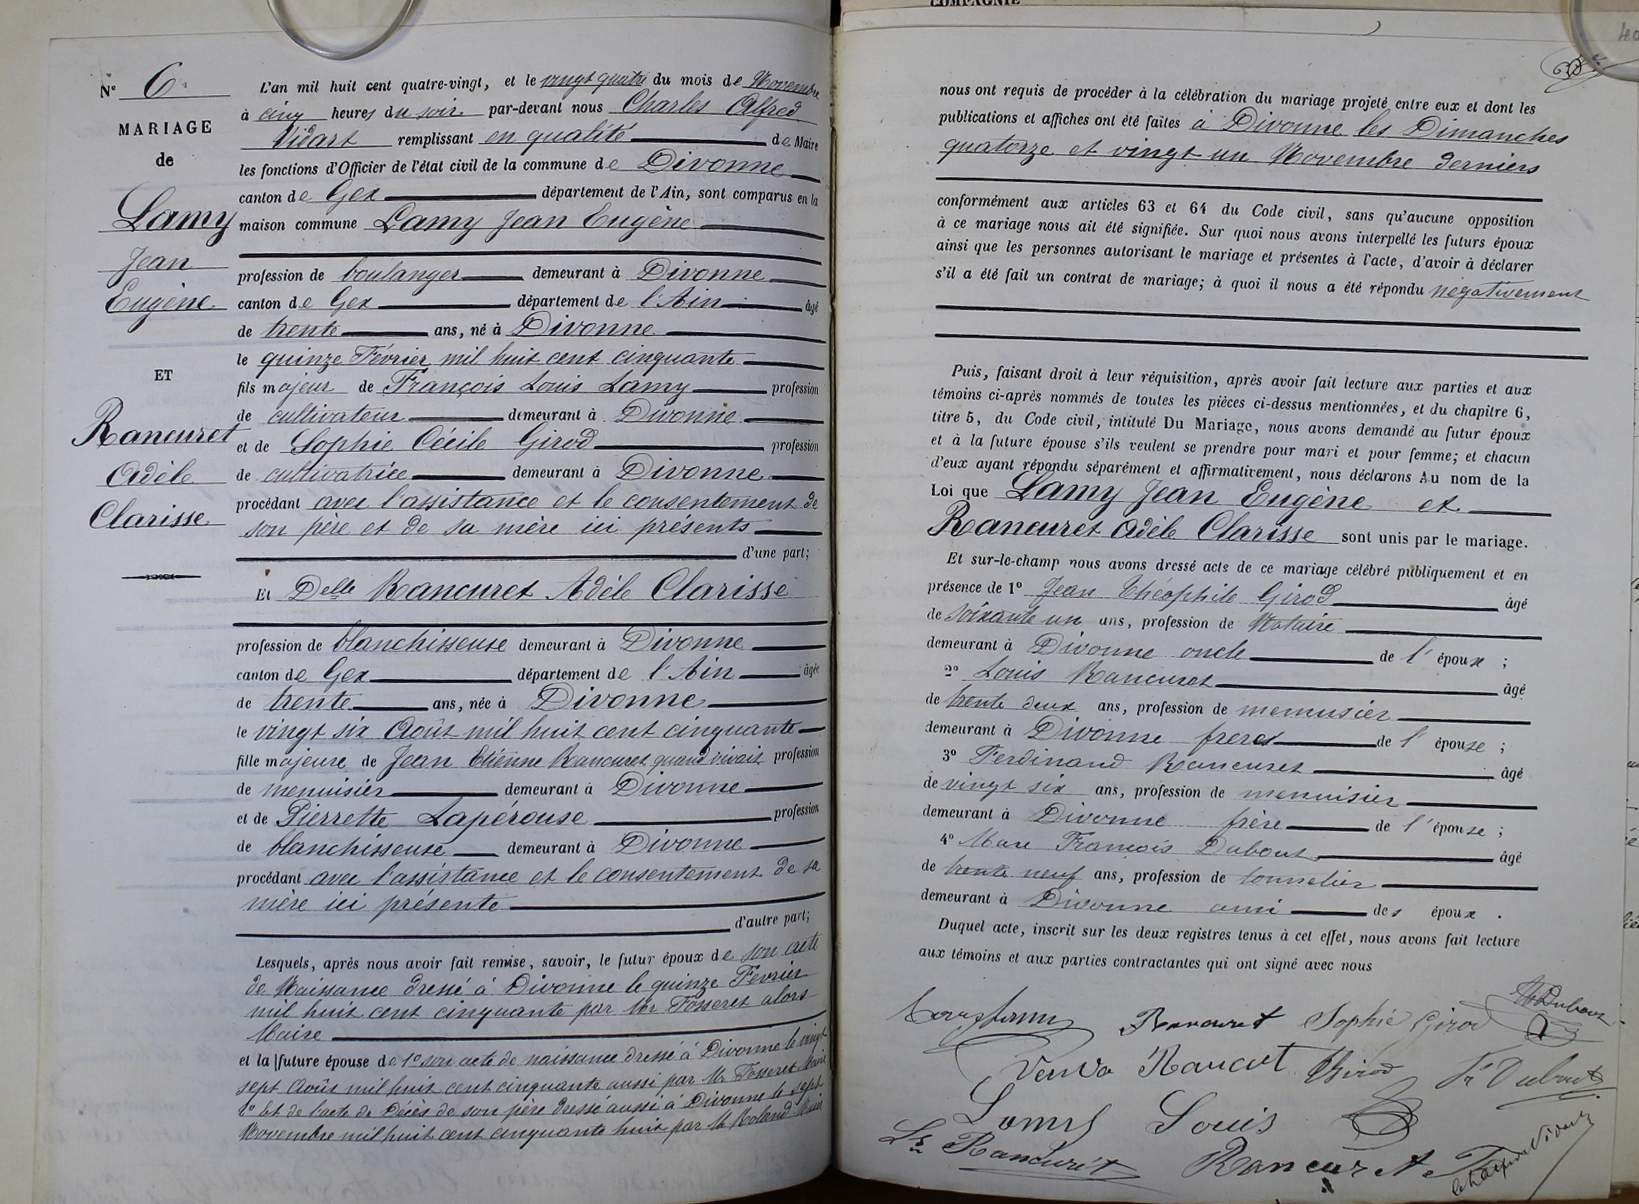 COMPAGNIE
N° 6
MARIAGE
de
Lamy
Jean
Eugène
ET
Rancuret
Adèle
Clarisse
L'an mil huit cent quatre-vingt, et le vingt quatre du mois de Novembre
à cinq heures du soir par-devant nous Charles Alfred
Vidart remplissant en qualité de Maire
les fonctions d'Officier de l'état civil de la commune de Divonne
canton de Gex département de l'Ain, sont comparus en la
maison commune Lamy Jean Eugène
profession de boulanger demeurant à Divonne
canton de Gex département de l'Ain âgé
de trente ans, né à Divonne
le quinze Février mil huit cent cinquante
fils majeur de François Louis Lamy profession
de cultivateur demeurant à Divonne
et de Sophie Cécile Girod profession
de cultivatrice demeurant à Divonne
procédant avec l'assistance et le consentement de
son père et de sa mère ici présents
d'une part;
Et Delle Rancuret Adèle Clarisse
profession de blanchisseuse demeurant à Divonne
canton de Gex département de l'Ain âgée
de trente ans, née à Divonne
le vingt six Août mil huit cent cinquante
fille majeure de Jean Etienne Rancuret quand vivait profession
de menuisier demeurant à Divonne
et de Pierrette Lapérouse profession
de blanchisseuse demeurant à Divonne
procédant avec l'assistance et le consentement de sa
mère ici présente
d'autre part;
Lesquels, après nous avoir fait remise, savoir, le futur époux de son acte
de Naissance dressé à Divonne le quinze Février
mil huit cent cinquante par Mr Fosseret alors
Maire
et la future épouse de 1° son acte de naissance dressé à Divonne le vingt
sept Août mil huit cent cinquante aussi par Mr Fosseret Maire
2° Et de l'acte de Décès de son père dressé aussi à Divonne le sept
Novembre mil huit cent cinquante huit par Mr Roland Maire
nous ont requis de procéder à la célébration du mariage projeté entre eux et dont les
publications et affiches ont été faites à Divonne les Dimanches
quatorze et vingt un Novembre derniers
conformément aux articles 63 et 64 du Code civil, sans qu'aucune opposition
à ce mariage nous ait été signifiée. Sur quoi nous avons interpellé les futurs époux
ainsi que les personnes autorisant le mariage et présentes à l'acte, d'avoir à déclarer
s'il a été fait un contrat de mariage; à quoi il nous a été répondu négativement
Puis, faisant droit à leur réquisition, après avoir fait lecture aux parties et aux
témoins ci-après nommés de toutes les pièces ci-dessus mentionnées, et du chapitre 6,
titre 5, du Code civil, intitulé Du Mariage, nous avons demandé au futur époux
et à la future épouse s'ils veulent se prendre pour mari et pour femme; et chacun
d'eux ayant répondu séparément et affirmativement, nous déclarons Au nom de la
Loi que Lamy Jean Eugène et
Rancuret Adèle Clarisse sont unis par le mariage.
Et sur-le-champ nous avons dressé acte de ce mariage célébré publiquement et en
présence de 1° Jean Théophile Girod âgé
de soixante un ans, profession de Notaire
demeurant à Divonne oncle de l'époux ;
2° Louis Rancuret âgé
de trente deux ans, profession de menusier
demeurant à Divonne frère de l'épouse ;
3° Ferdinand Rancuret âgé
de vingt six ans, profession de menuisier
demeurant à Divonne frère de l'épouse ;
4° Marc François Dubout âgé
de trente neuf ans, profession de tonnelier
demeurant à Divonne ami des époux .
Duquel acte, inscrit sur les deux registres tenus à cet effet, nous avons fait lecture
aux témoins et aux parties contractantes qui ont signé avec nous
Rancuret Sophie Girod
Girod
Lamy Louis
Ls Rancurét Rancuret